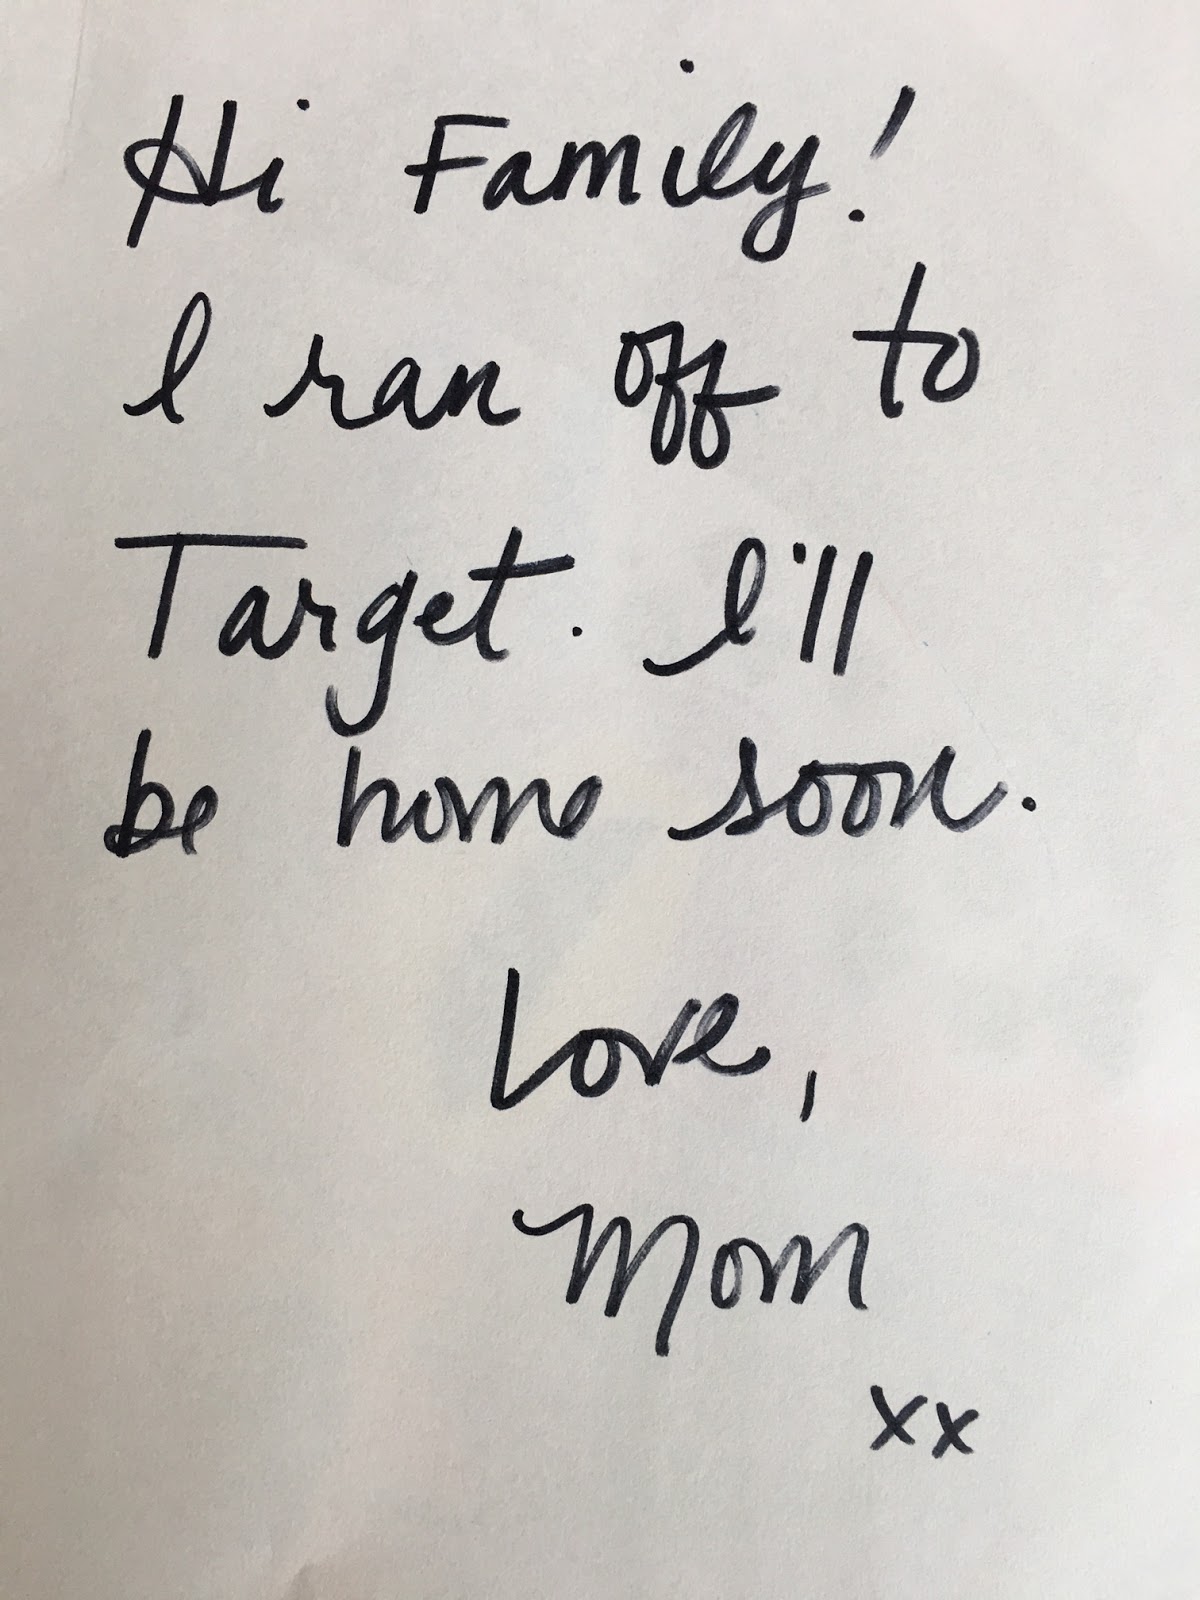 Hi Family!
I ran off to
Target. I'll
be home soon.
Love,
Mom
xx